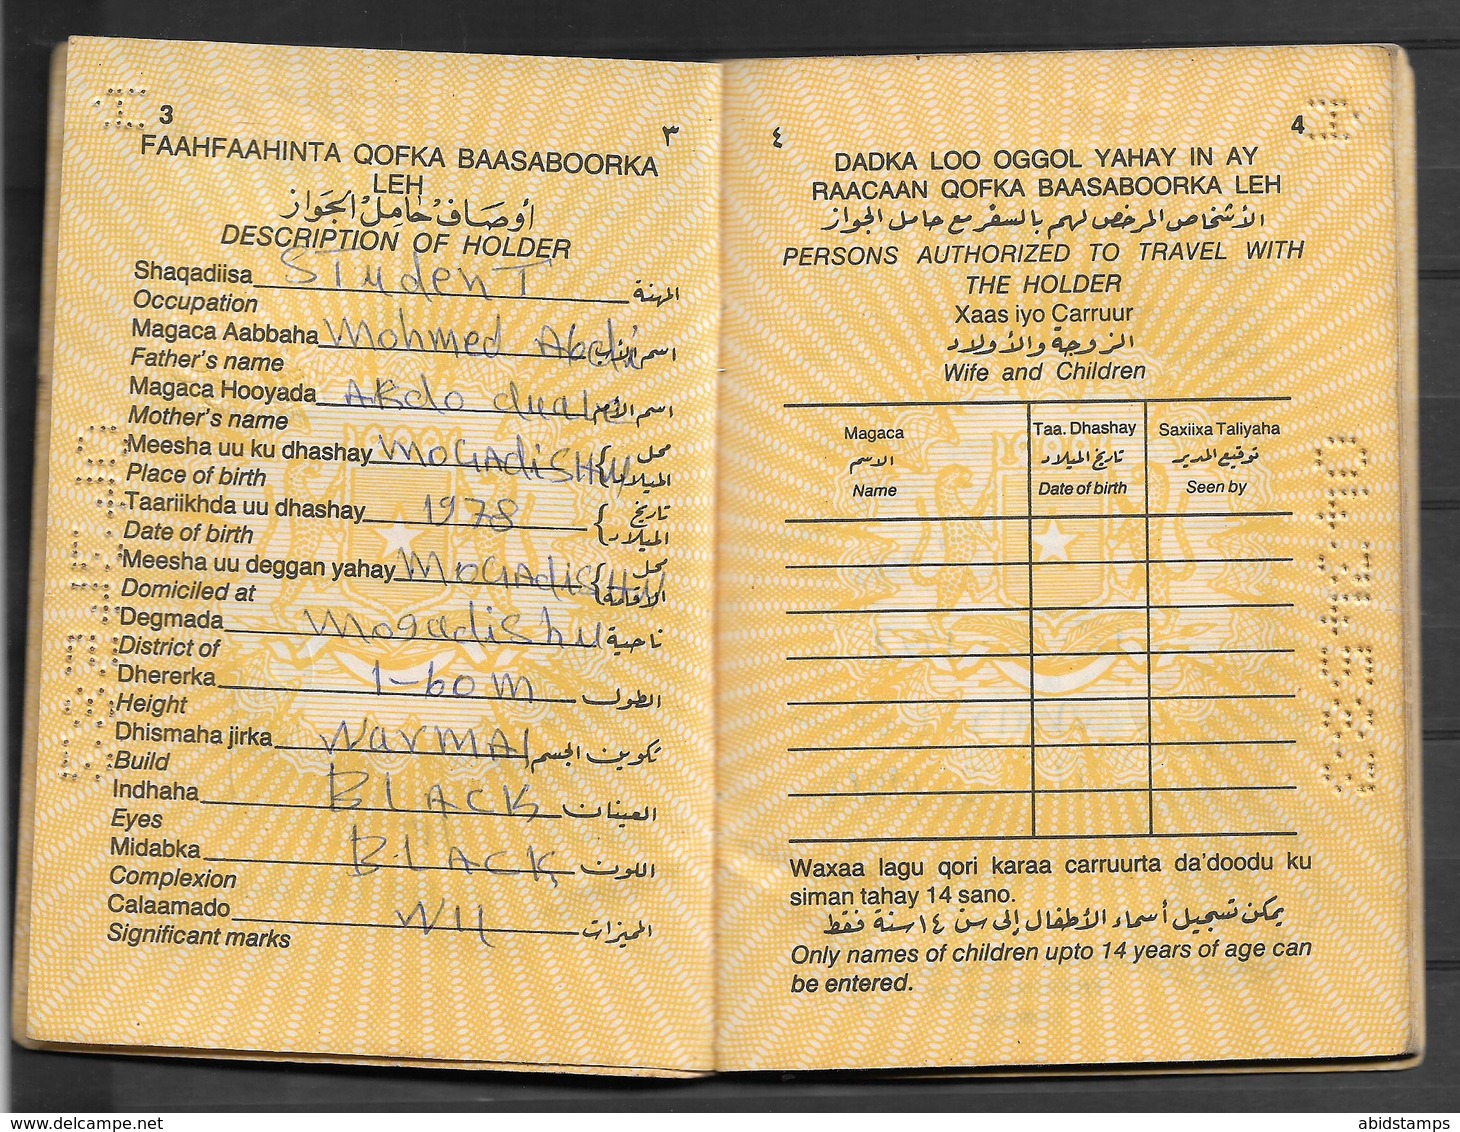 3 ٣
FAAHFAAHINTA QOFKA BAASABOORKA
LEH
أوصاف حامل الجواز
DESCRIPTION OF HOLDER
Shaqadiisa STudenT المهنة
Occupation
Magaca Aabbaha Mohmed Abdi اسم الأب
Father's name
Magaca Hooyada اسم الأم
Mother's name
Meesha uu ku dhashay MOGAdiSHU محل الميلاد
Place of birth
Taariikhda uu dhashay 1978 تاريخ الميلاد
Date of birth
Meesha uu deggan yahay MOGAdiSHU محل الاقامة
Domiciled at
Degmada Mogadishu ناحية
District of
Dhererka 1-60m الطول
Height
Dhismaha jirka NarmAl تكوين الجسم
Build
Indhaha BLACK العينان
Eyes
Midabka BLACK اللون
Complexion
Calaamado المميزات
Significant marks
٤ 4
DADKA LOO OGGOL YAHAY IN AY
RAACAAN QOFKA BAASABOORKA LEH
الأشخاص المرخص لهم بالسفر مع حامل الجواز
PERSONS AUTHORIZED TO TRAVEL WITH
THE HOLDER
Xaas iyo Carruur
الزوجة والأولاد
Wife and Children
Magaca Taa. Dhashay Saxiixa Taliyaha
الاسم تاريخ الميلاد توقيع المدير
Name Date of birth Seen by
Waxaa lagu qori karaa carruurta da'doodu ku
siman tahay 14 sano.
يمكن تسجيل أسماء الأطفال إلى سن ١٤ سنة فقط
Only names of children upto 14 years of age can
be entered.
delcampe.net
abidstamps